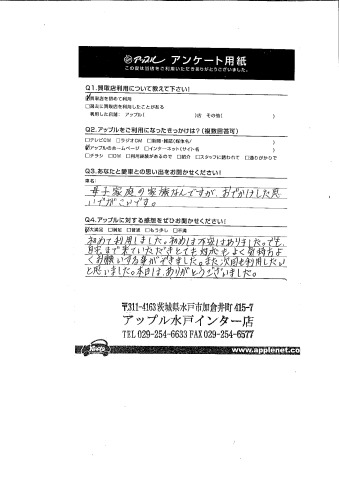 アップル アンケート用紙
この度は当店をご利用いただきありがとうございました。
Q1.買取店利用について教えて下さい!
☑買取店を初めて利用
□過去に買取店を利用したことがある
利用した店舗: アップル( )店 その他( )
Q2.アップルをご利用になったきっかけは?(複数回答可)
□テレビCM □ラジオCM □新聞・雑誌(媒体名 )
☑アップルのホームページ □インターネット(サイト名 )
□チラシ □DM □利用経験があるので □紹介 □スタッフに誘われて □通りがかりで
Q3.あなたと愛車との思い出をお聞かせください!
車名:
母子家庭の家族なんですが、おでかけした思
いでがいっぱいです。
Q4.アップルに対する感想をぜひお聞かせください!
☑大満足 □満足 □普通 □もう少し □不満
初めて利用しました。初めは不安はありました。でも、
自宅まで来ていただきとても対応もよく気持ちよ
くお願いする事ができました。また次回も利用したい
と思いました。本日は、ありがとうございました。
〒311-4163茨城県水戸市加倉井町415-7
アップル水戸インター店
TEL 029-254-6633 FAX 029-254-6577
Apple
www.applenet.co